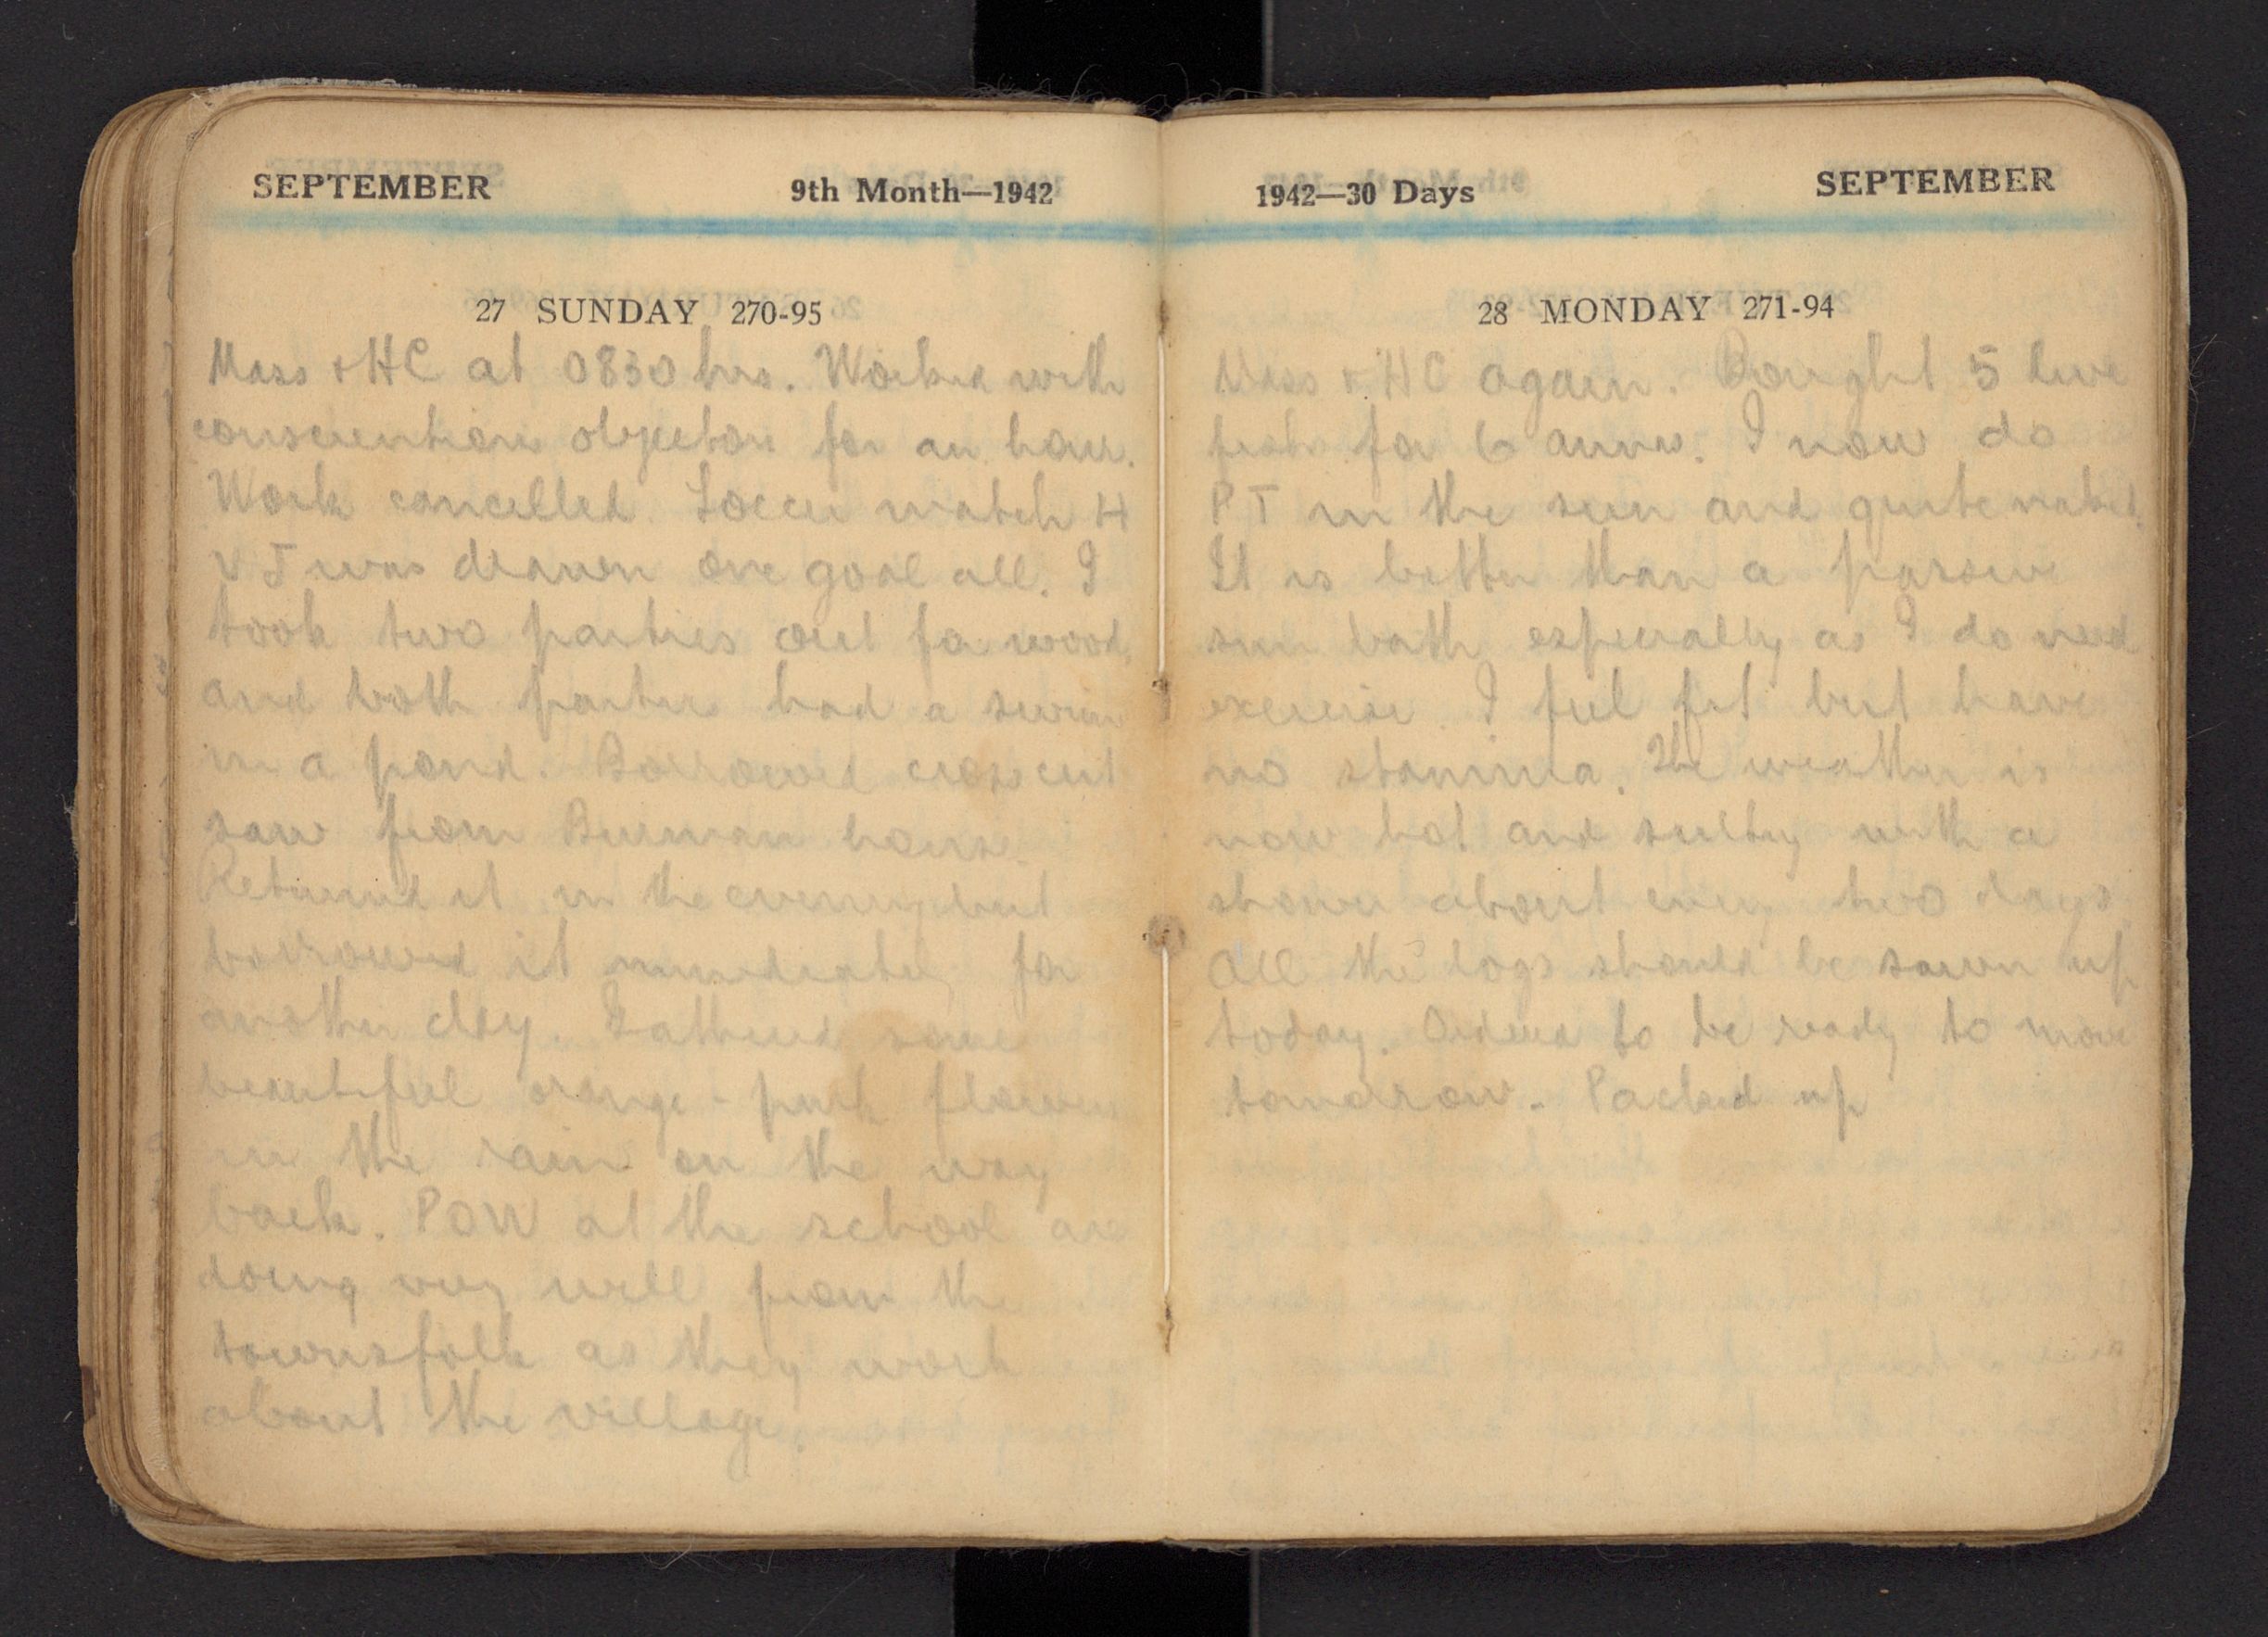 SEPTEMBER 9th Month—1942
27 SUNDAY 270-95
Mass + HC at 0830 hrs. Worked with
conscientious objectors for an hour.
Work cancelled. Soccer match H
v J was drawn one goal all. I
took two parties out for wood,
and both parties had a swim
in a pond. Borrowed cross cut
saw from Burman house.
Returned it in the evening but
borrowed it immediately for
another day. Gathered some
beautiful orange-pink flowers
in the rain on the way
back. POW at the school are
doing very well from the
townsfolk as they work
about the village.
1942—30 Days SEPTEMBER
28 MONDAY 271-94
Mass + HC again. Bought 5 live
fish for 6 annas. I now do
PT in the sun and quite naked.
It is better than a passive
sun bath especially as I do need
exercise. I feel fit but have
no stamina. The weather is
now hot and sultry with a
shower about every two days.
All the logs should be sawn up
today. Ordered to be ready to move
tomorrow. Packed up